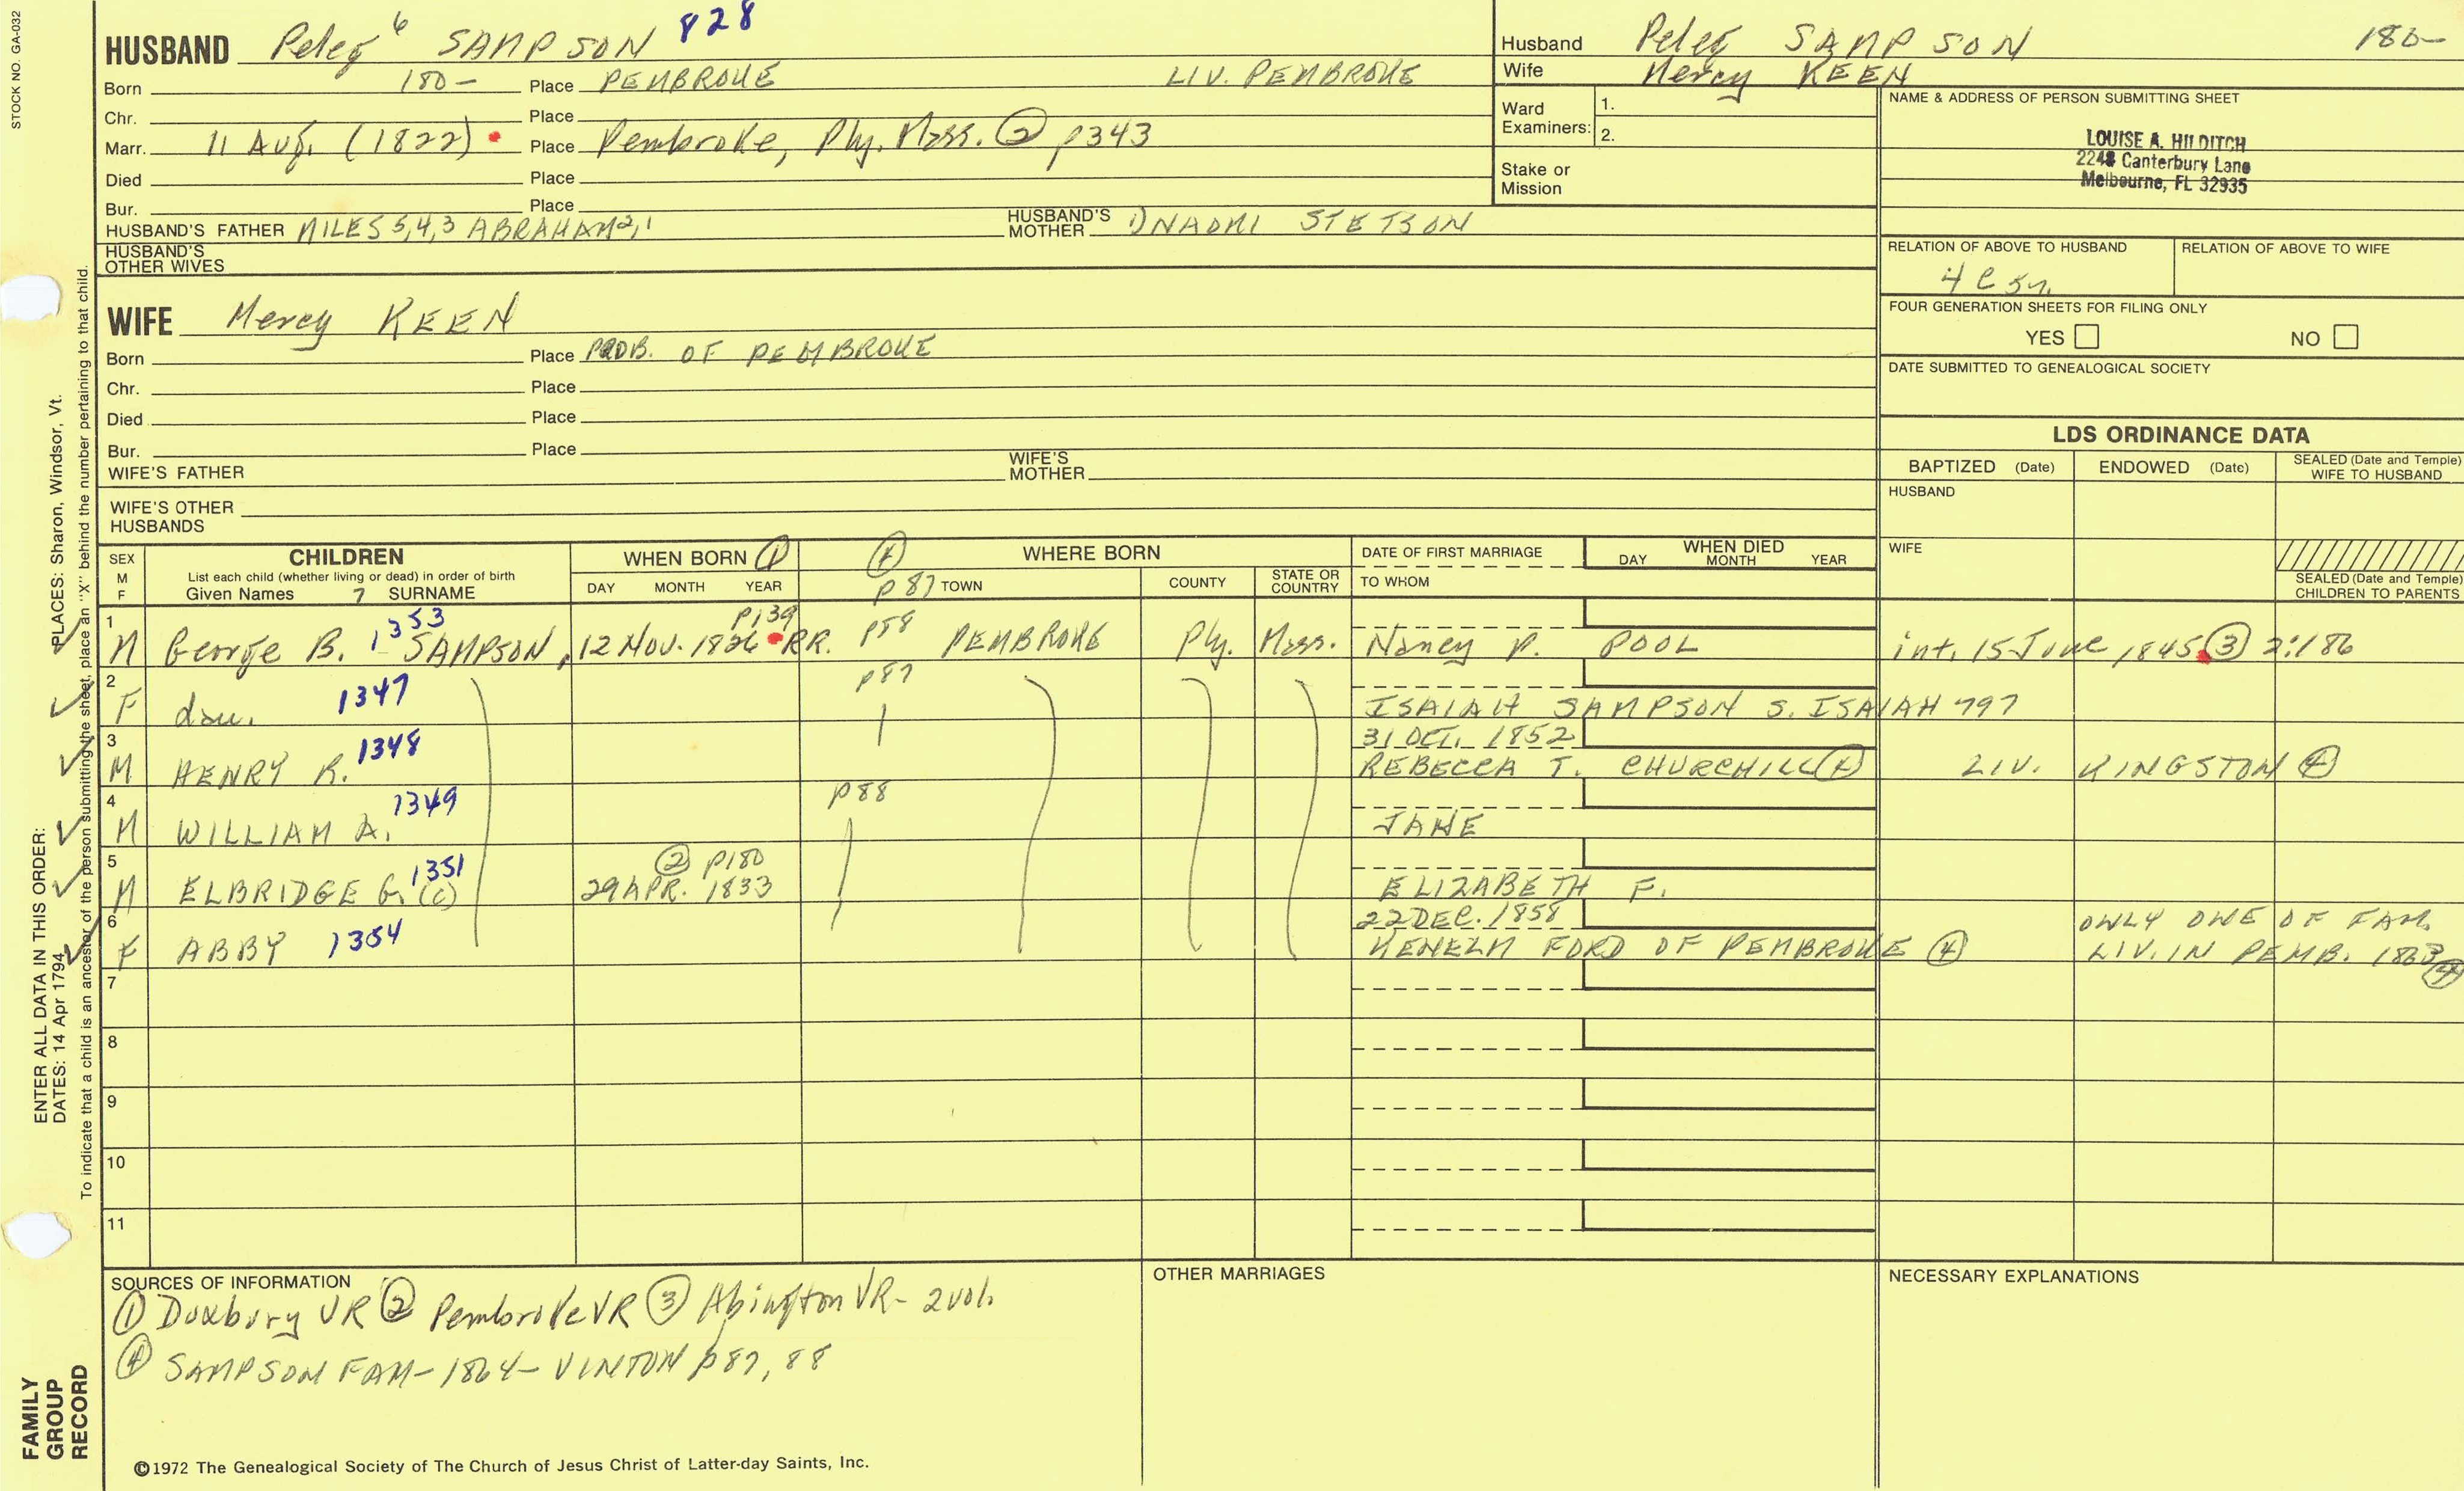 STOCK NO. GA-032
HUSBAND Peleg 6 SAMPSON 828
Born 180- Place PEMBROKE LIV. PEMBROKE
Chr. Place
Marr. 11 Aug. (1822) Place Pembroke, Ply. Mass. ② p343
Died Place
Bur. Place
HUSBAND'S FATHER MILES 5,4,3 ABRAHAM 2,1 HUSBAND'S MOTHER 1) NAOMI STETSON
HUSBAND'S OTHER WIVES
Husband Peleg SAMPSON 180-
Wife Mercy KEEN
Ward Examiners: 1.
2.
Stake or Mission
NAME & ADDRESS OF PERSON SUBMITTING SHEET
LOUISE A. HILDITCH
2248 Canterbury Lane
Melbourne, FL 32935
RELATION OF ABOVE TO HUSBAND RELATION OF ABOVE TO WIFE
FOUR GENERATION SHEETS FOR FILING ONLY
YES NO
DATE SUBMITTED TO GENEALOGICAL SOCIETY
WIFE Mercy KEEN
Born Place PROB. OF PEMBROKE
Chr. Place
Died Place
Bur. Place
WIFE'S FATHER WIFE'S MOTHER
WIFE'S OTHER HUSBANDS
LDS ORDINANCE DATA
BAPTIZED (Date) ENDOWED (Date) SEALED (Date and Temple) WIFE TO HUSBAND
HUSBAND
WIFE
SEALED (Date and Temple) CHILDREN TO PARENTS
SEX M F
CHILDREN
List each child (whether living or dead) in order of birth
Given Names 7 SURNAME
WHEN BORN ①
DAY MONTH YEAR
④ WHERE BORN
p87 TOWN COUNTY STATE OR COUNTRY
DATE OF FIRST MARRIAGE
TO WHOM
WHEN DIED
DAY MONTH YEAR
1 1353 p139
M George B. SAMPSON, 12 NOV. 1826 RR. p88 PEMBROKE Ply. Mass. Nancy P. POOL int. 15 June 1845 ③ 2:186
2 p87
F dau. 1347 ISAIAH SAMPSON S. ISAIAH 797
3 31 OCT. 1852
M HENRY R. 1348 REBECCA T. CHURCHILL ④ LIV. KINGSTON ④
4 p88
M WILLIAM A. 1349 JANE
5 ② p180
M ELBRIDGE G. (c) 1351 29 APR. 1833 ELIZABETH F.
6 22 DEC. 1858 ONLY ONE OF FAM.
F ABBY 1354 KENELM FORD OF PEMBROKE ④ LIV. IN PEMB. 1863 ④
7
8
9
10
11
SOURCES OF INFORMATION
① Duxbury VR ② Pembroke VR ③ Abington VR - 2 vol.
④ SAMPSON FAM - 1864 - VINTON p87, 88
OTHER MARRIAGES
NECESSARY EXPLANATIONS
©1972 The Genealogical Society of The Church of Jesus Christ of Latter-day Saints, Inc.
FAMILY GROUP RECORD
ENTER ALL DATA IN THIS ORDER:
DATES: 14 Apr 1794
PLACES: Sharon, Windsor, Vt.
To indicate that a child is an ancestor of the person submitting the sheet, place an "X" behind the number pertaining to that child.